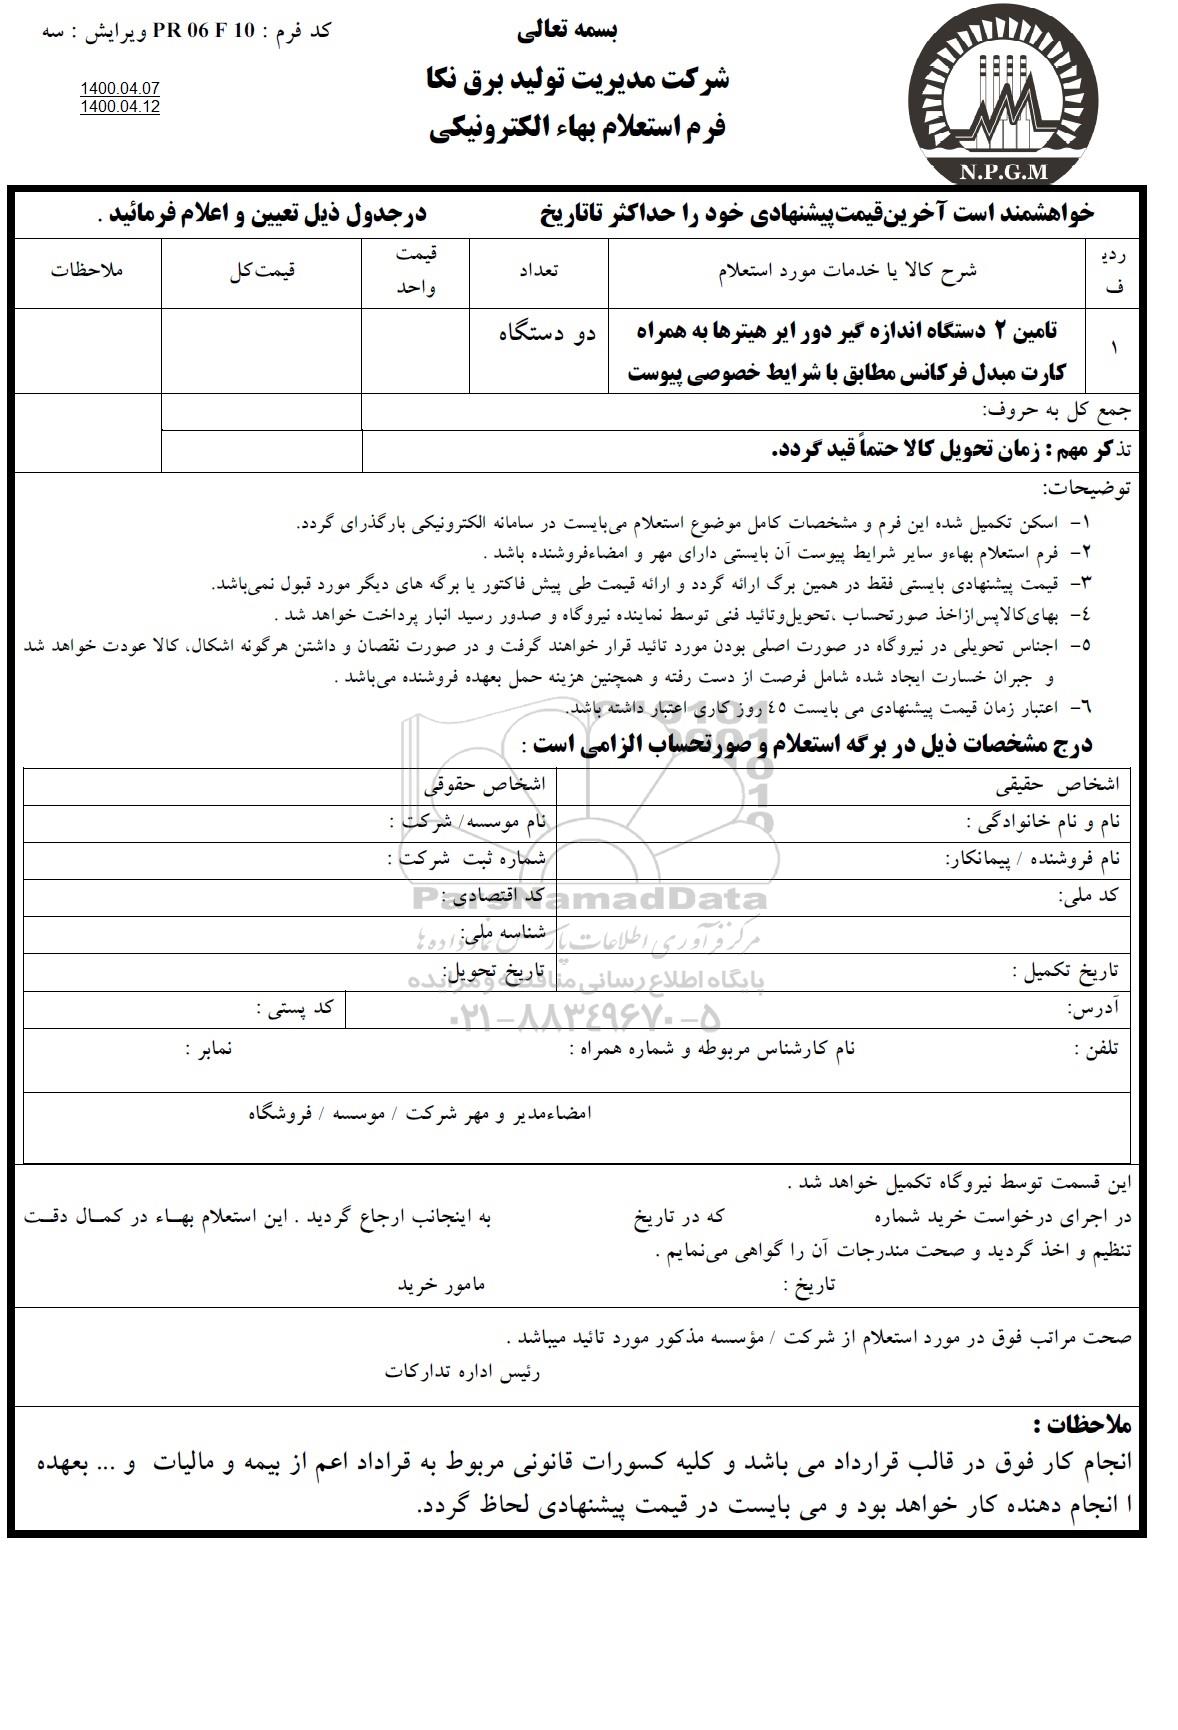 بسمه تعالی
کد فرم : PR 06 F 10 ویرایش : سه
شرکت مدیریت تولید برق نکا
1400.04.07
1400.04.12
فرم استعلام بهاء الکترونیکی
N.P.G.M
خواهشمند است آخرین‌قیمت‌پیشنهادی خود را حداکثر تاتاریخ درجدول ذیل تعیین و اعلام فرمائید .
ردیف شرح کالا یا خدمات مورد استعلام تعداد قیمت واحد قیمت‌کل ملاحظات
۱ تامین ۲ دستگاه اندازه گیر دور ایر هیترها به همراه دو دستگاه
کارت مبدل فرکانس مطابق با شرایط خصوصی پیوست
جمع کل به حروف:
تذکر مهم : زمان تحویل کالا حتماً قید گردد.
توضیحات:
۱– اسکن تکمیل شده این فرم و مشخصات کامل موضوع استعلام می‌بایست در سامانه الکترونیکی بارگذرای گردد.
۲– فرم استعلام بهاءو سایر شرایط پیوست آن بایستی دارای مهر و امضاءفروشنده باشد .
۳– قیمت پیشنهادی بایستی فقط در همین برگ ارائه گردد و ارائه قیمت طی پیش فاکتور یا برگه های دیگر مورد قبول نمی‌باشد.
٤– بهای‌کالاپس‌ازاخذ صورتحساب ،تحویل‌وتائید فنی توسط نماینده نیروگاه و صدور رسید انبار پرداخت خواهد شد .
٥– اجناس تحویلی در نیروگاه در صورت اصلی بودن مورد تائید قرار خواهند گرفت و در صورت نقصان و داشتن هرگونه اشکال، کالا عودت خواهد شد
و جبران خسارت ایجاد شده شامل فرصت از دست رفته و همچنین هزینه حمل بعهده فروشنده می‌باشد .
٦– اعتبار زمان قیمت پیشنهادی می بایست ٤٥ روز کاری اعتبار داشته باشد.
درج مشخصات ذیل در برگه استعلام و صورتحساب الزامی است :
اشخاص حقیقی اشخاص حقوقی
نام و نام خانوادگی : نام موسسه/ شرکت :
نام فروشنده / پیمانکار: شماره ثبت شرکت :
کد ملی: کد اقتصادی :
ParsNamadData
شناسه ملی:
مرکز فرآوری اطلاعات پارس نماد داده ها
تاریخ تکمیل : تاریخ تحویل:
پایگاه اطلاع رسانی مناقصه و مزایده
آدرس: کد پستی :
۰۲۱–۸۸۳۴۹۶۷۰–۵
تلفن : نام کارشناس مربوطه و شماره همراه : نمابر :
امضاءمدیر و مهر شرکت / موسسه / فروشگاه
این قسمت توسط نیروگاه تکمیل خواهد شد .
در اجرای درخواست خرید شماره که در تاریخ به اینجانب ارجاع گردید . این استعلام بهـاء در کمـال دقـت
تنظیم و اخذ گردید و صحت مندرجات آن را گواهی می‌نمایم .
تاریخ : مامور خرید
صحت مراتب فوق در مورد استعلام از شرکت / مؤسسه مذکور مورد تائید میباشد .
رئیس اداره تدارکات
ملاحظات :
انجام کار فوق در قالب قرارداد می باشد و کلیه کسورات قانونی مربوط به قراداد اعم از بیمه و مالیات و ... بعهده
ا انجام دهنده کار خواهد بود و می بایست در قیمت پیشنهادی لحاظ گردد.